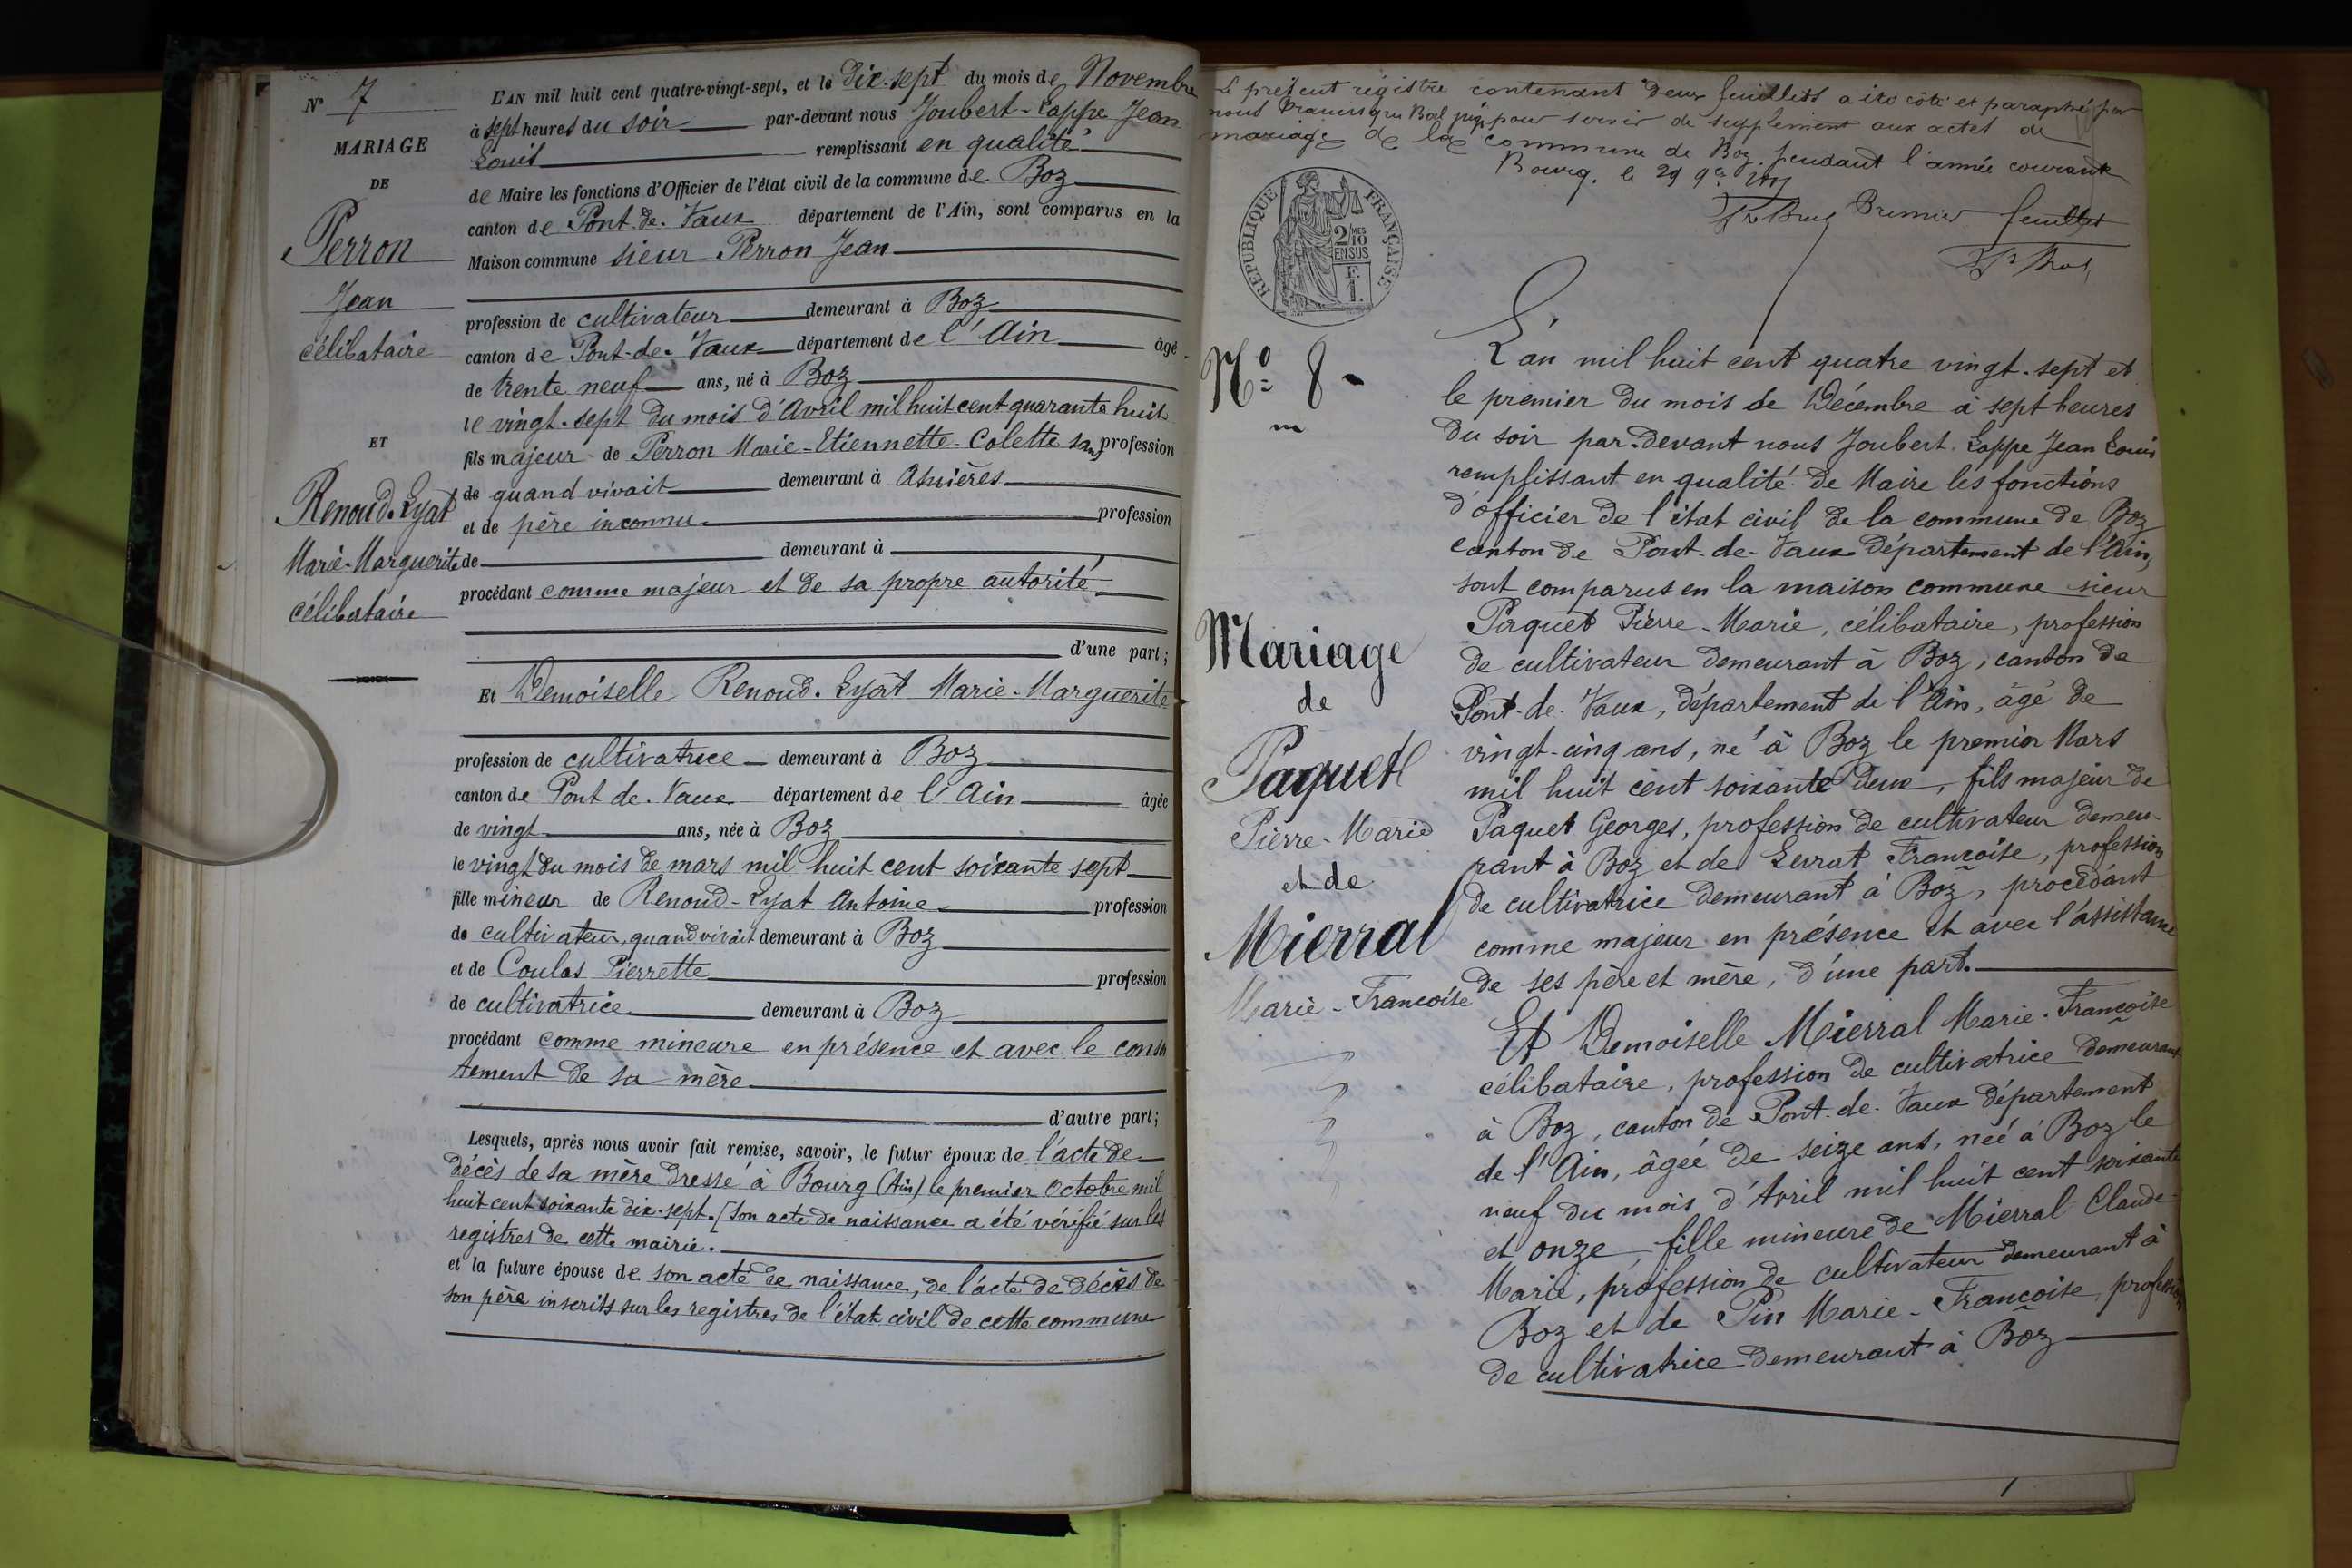 N° 7
MARIAGE
DE
Perron
Jean
célibataire
ET
Renoud-Lyat
Marie-Marguerite
célibataire
L'AN mil huit cent quatre-vingt-sept, et le dix-sept du mois de Novembre
à sept heures du soir par-devant nous Joubert-Lappe Jean
Louis remplissant en qualité
de Maire les fonctions d'Officier de l'état civil de la commune de Boz
canton de Pont-de-Vaux département de l'Ain, sont comparus en la
Maison commune sieur Perron Jean
profession de cultivateur demeurant à Boz
canton de Pont-de-Vaux département de l'Ain âgé
de trente neuf ans, né à Boz
le vingt-sept du mois d'Avril mil huit cent quarante huit
fils majeur de Perron Marie-Etiennette-Colette sans profession
de quand vivait demeurant à Asnières
et de père inconnu profession
de demeurant à
procédant comme majeur et de sa propre autorité
d'une part;
Et Demoiselle Renoud-Lyat Marie-Marguerite
profession de cultivatrice demeurant à Boz
canton de Pont de-Vaux département de l'Ain âgée
de vingt ans, née à Boz
le vingt du mois de mars mil huit cent soixante sept
fille mineur de Renoud-Lyat Antoine profession
de cultivateur, quand vivait demeurant à Boz
et de Coulas Pierrette profession
de cultivatrice demeurant à Boz
procédant comme mineure en présence et avec le consen
tement de sa mère
d'autre part;
Lesquels, après nous avoir fait remise, savoir, le futur époux de l'acte de
décès de sa mère dressé à Bourg (Ain) le premier Octobre mil
huit cent soixante dix-sept. (Son acte de naissance a été vérifié sur les
registres de cette mairie.
et la future épouse de son acte de naissance, de l'acte de décès de
son père inscrits sur les registres de l'état civil de cette commune
Le présent registre contenant deux feuillets a été côté et paraphé par
nous pour servir de supplément aux actes de
mariage de la commune de Boz pendant l'année courante
Bourg, le 29 9bre
Premier feuillet
RÉPUBLIQUE FRANÇAISE
2/10 MES
EN SUS
F.
1.
N° 8
Mariage
de
Paquet
Pierre-Marie
et de
Mierral
Marie-Françoise
L'an mil huit cent quatre vingt-sept et
le premier du mois de Décembre à sept heures
du soir par-devant nous Joubert-Lappe Jean Louis
remplissant en qualité de Maire les fonctions
d'officier de l'état civil de la commune de Boz
canton de Pont-de-Vaux département de l'Ain,
sont comparus en la maison commune sieur
Paquet Pierre-Marie, célibataire, profession
de cultivateur demeurant à Boz, canton de
Pont-de-Vaux, département de l'Ain, âgé de
vingt-cinq ans, né à Boz le premier Mars
mil huit cent soixante deux, fils majeur de
Paquet Georges, profession de cultivateur demeu-
rant à Boz et de Françoise, profession
de cultivatrice demeurant à Boz, procédant
comme majeur en présence et avec l'assistance
de ses père et mère, d'une part.
Et Demoiselle Mierral Marie-Françoise
célibataire, profession de cultivatrice demeurant
à Boz, canton de Pont-de-Vaux département
de l'Ain, âgée de seize ans, née à Boz le
neuf du mois d'Avril mil huit cent soixante
et onze, fille mineure de Mierral Claude-
Marie, profession de cultivateur demeurant à
Boz et de Pin Marie-Françoise, profession
de cultivatrice demeurant à Boz